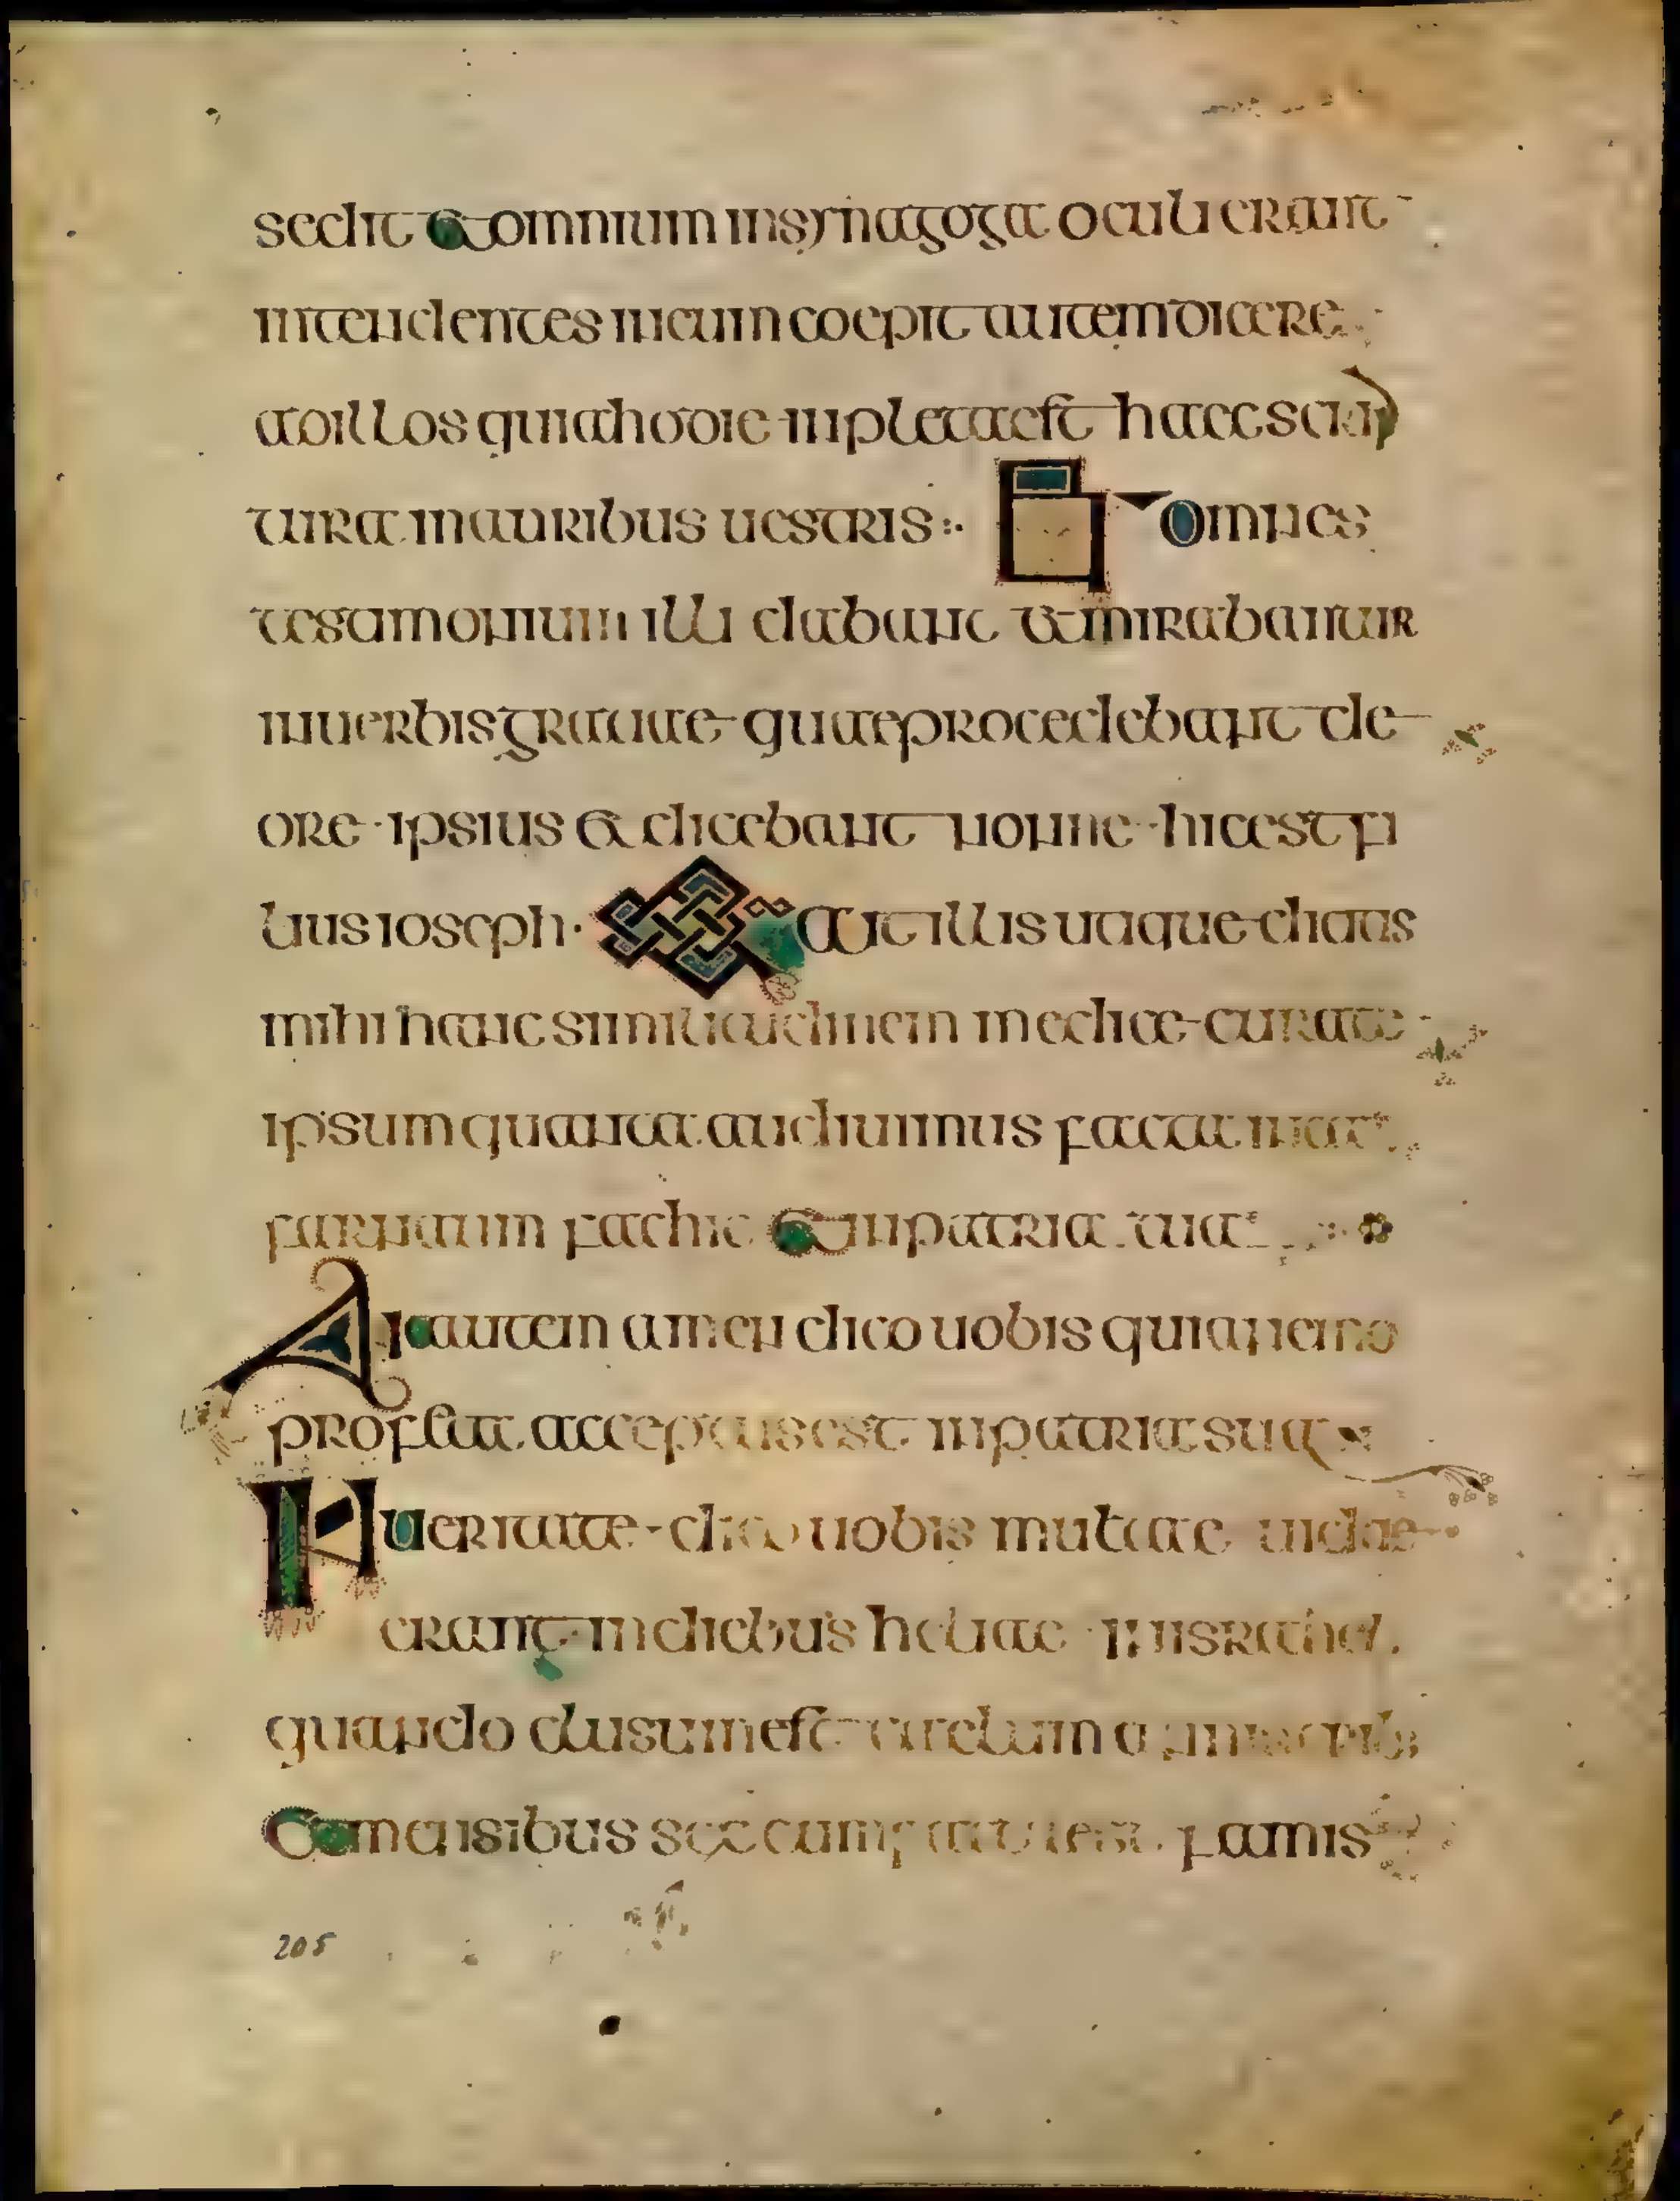 sedit et omnium in synagoga oculi erant
intendentes in eum coepit autem dicere
ad illos quia hodie inpleta est haec scrip
tura in auribus uestris:· Et omnes
testimonium illi dabant et mirabantur
in uerbis gratiae quae procedebant de
ore ipsius et dicebant nonne hic est fi
lius ioseph· Et ait illis utique dicitis
mihi hanc similitudinem medice curate
ipsum quanta audiuimus facta in ca
farnaum fac hic et in patria tua
Ait autem amen dico uobis quia nemo
profeta acceptus est in patria sua
In ueritate dico uobis multae uidae
erant in diebus heliae in israhel.
quando clusum est caelum annis trib;
et mensibus sex cum facta est famis
205